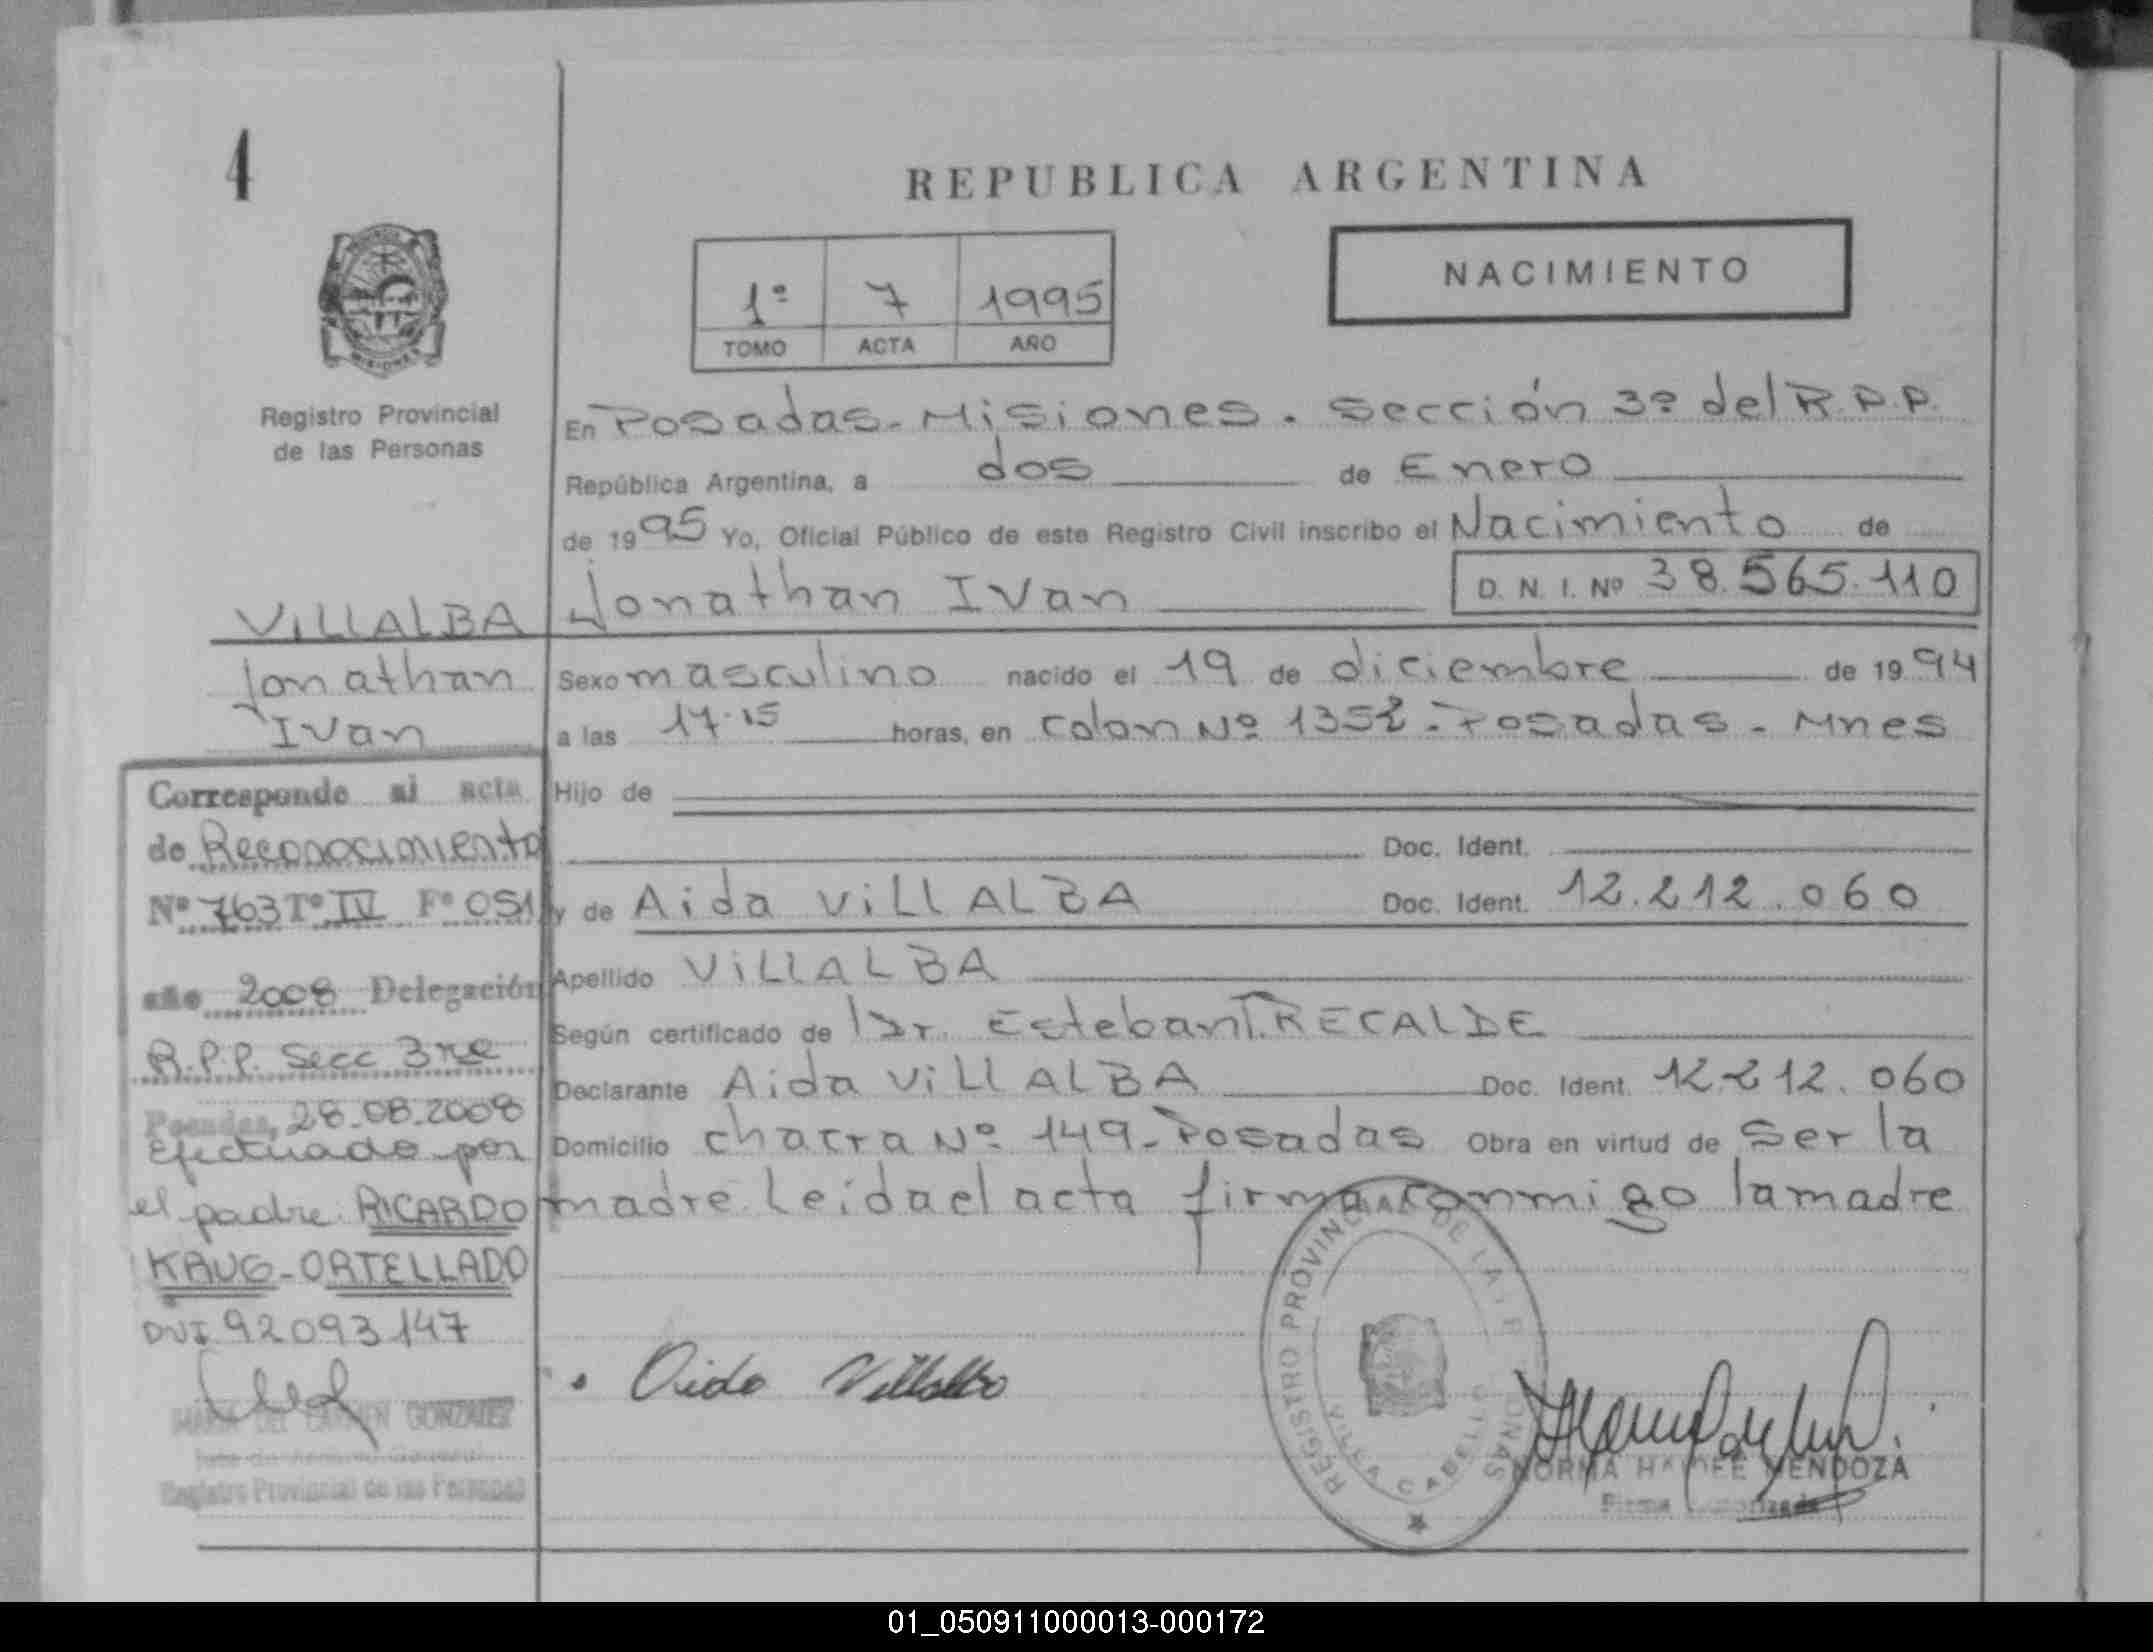 4
REPUBLICA ARGENTINA
NACIMIENTO
1º 7 1995
TOMO ACTA AÑO
MISIONES
Registro Provincial
de las Personas
En Posadas - Misiones. Sección 3º del R.P.P.
República Argentina, a dos de Enero
de 1995 Yo, Oficial Público de este Registro Civil inscribo el Nacimiento de
Jonathan Ivan D. N. I. Nº 38.565.110
VILLALBA
Jonathan
Ivan
Sexo masculino nacido el 19 de diciembre de 1994
a las 17.15 horas, en Colon Nº 1352 - Posadas - Mnes
Hijo de
Doc. Ident.
y de Aida VILLALBA Doc. Ident. 12.212.060
Apellido VILLALBA
Según certificado de Dr. Esteban T. RECALDE
Declarante Aida VILLALBA Doc. Ident. 12.212.060
Domicilio chacra Nº 149 - Posadas Obra en virtud de Ser la
madre. Leida el acta firma conmigo la madre
Corresponde al acta
de Reconocimiento
Nº 763 Tº IV Fº 051
año 2008 Delegación
R.P.P. Secc 3ra
Posadas, 28.08.2008
Efectuado por
el padre: RICARDO
KRUG - ORTELLADO
DNI 92093147
MARIA DEL CARMEN GONZALEZ
Registro Provincial de las Personas
Aida Villalba
REGISTRO PROVINCIAL DE LAS PERSONAS
VILLA CABELLO
NORMA HAYDEE MENDOZA
Firma Autorizada
01_050911000013-000172